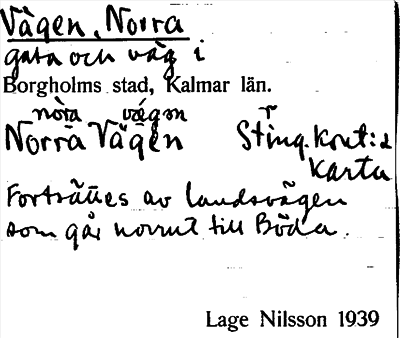 Vägen, Norra
gata och väg i
Borgholms stad, Kalmar län.
nòra vǽgən
Norra Vägen Stinq. kont:s
Karta
Fortsättes av landsvägen
som går norrut till Böda.
Lage Nilsson 1939